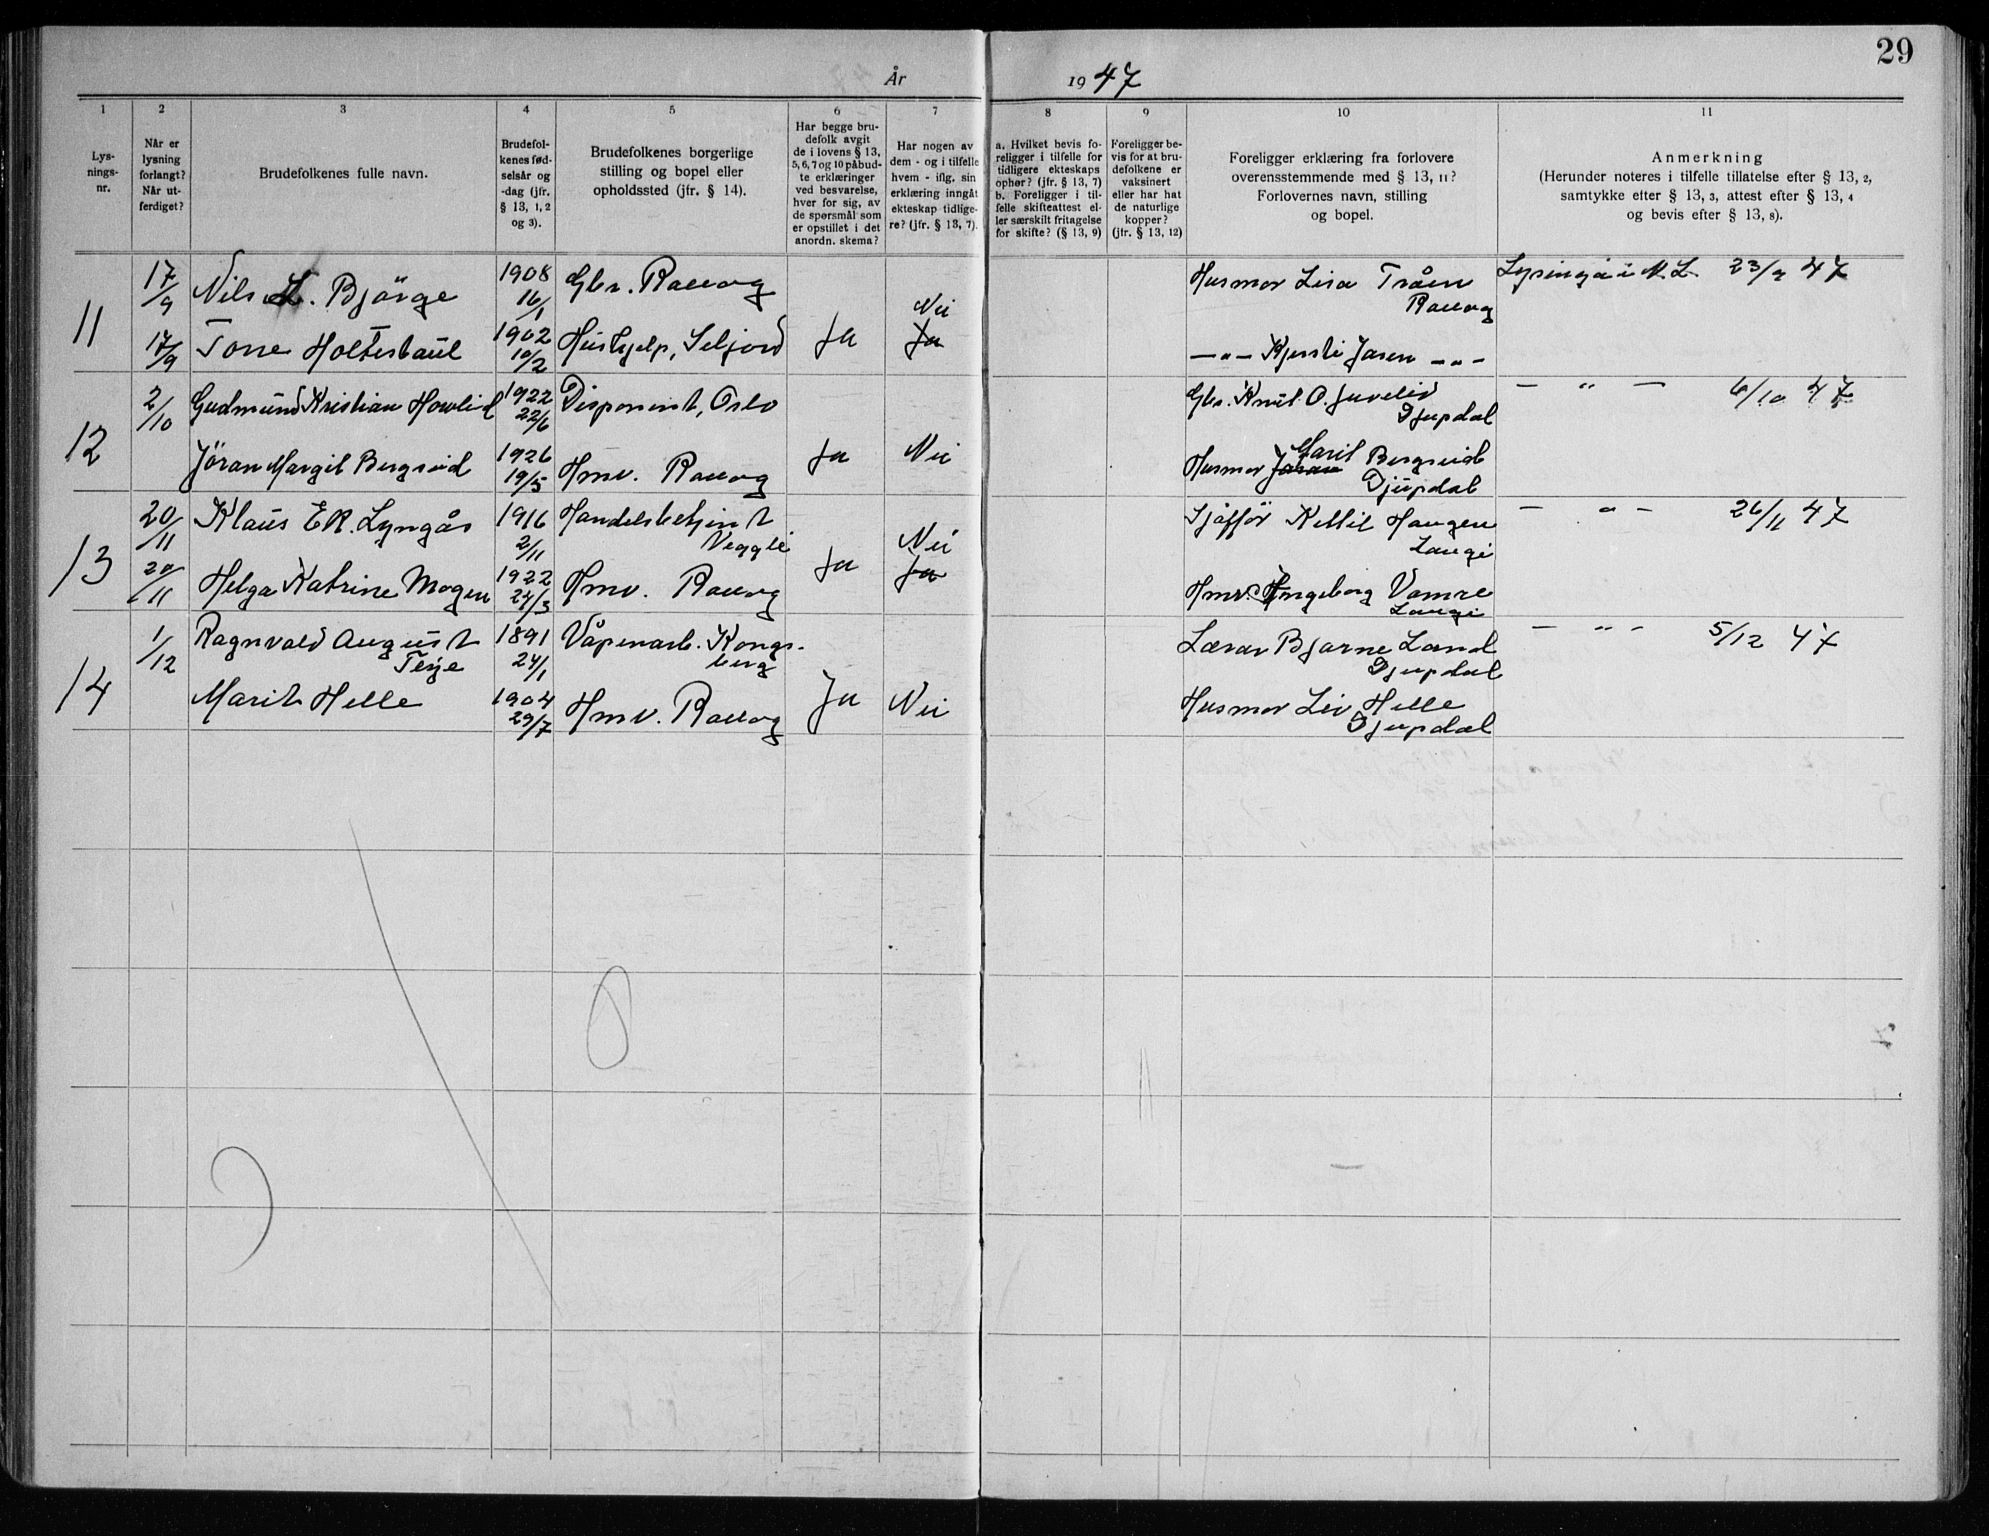 29
År
19 47
1
2
3
4
5
6
7
8
9
10
11
Lys-
nings-
nr.
Når er
lysning
forlangt?
Når ut-
ferdiget?
Brudefolkenes fulle navn.
Brudefol-
kenes fød-
selsår og
-dag (jfr.
§ 13, 1, 2
og 3).
Brudefolkenes borgerlige
stilling og bopel eller
opholdssted (jfr. § 14).
Har begge bru-
defolk avgit
de i lovens § 13,
5, 6, 7 og 10 påbud-
te erklæringer
ved besvarelse,
hver for sig, av
de spørsmål som
er opstillet i det
anordn. skema?
Har nogen av
dem - og i tilfelle
hvem - iflg. sin
erklæring inngåt
ekteskap tidlige-
re? (jfr. § 13, 7).
a. Hvilket bevis fo-
religger i tilfelle for
tidligere ekteskaps
ophør? (jfr. § 13, 7)
b. Foreligger i til-
felle skifteattest el-
ler særskilt fritagelse
for skifte? (§ 13, 9)
Foreligger be-
vis for at bru-
defolkene er
vaksinert
eller har hat
de naturlige
kopper?
(jfr. § 13, 12)
Foreligger erklæring fra forlovere
overensstemmende med § 13, 11?
Forlovernes navn, stilling
og bopel.
Anmerkning
(Herunder noteres i tilfelle tillatelse efter § 13, 2,
samtykke efter § 13, 3, attest efter § 13, 4
og bevis efter § 13, 8).
11
17/9
Nils L. Bjørge
1908
16/1
Gbr. Rauog
Husmor Lisa Tråen
Rauog
Lysinga i N. L. 23/9 47
17/9
Tone Holtesbaul
1902
10/2
Hushjelp, Seljord
Ja
Nei
Ja
— " — Kjersti Jasen — " —
12
2/10
Gudmund Kristian Howlid
1922
22/6
Disponent, Oslo
Gbr. Knut O. Juvelid
Djupdal
— " — 6/10 47
Jöran Margit Bergseid
1926
19/5
Hmv. Rauog
Ja
Nei
Marit
Husmor Joran Bergseid
Djupdal
13
20/11
Klaus E R. Lyngås
1916
2/11
Handelsbetjent
Veggli
Sjåffør Kittil Haugen
Laugi
— " — 26/11 47
20/11
Helga Katrine Mogen
1922
24/3
Hmv. Rauog
Ja
Nei
Ja
Hmv. Ingeborg Vamre
Laugi
14
1/12
Ragnvald August
Terje
1891
24/1
Våpenarb. Kongs-
berg
Lærar Bjarne Land
Djupdal
— " — 5/12 47
Marit Helle
1904
29/7
Hmv. Rauog
Ja
Nei
Husmor Liv Helle
Djupdal